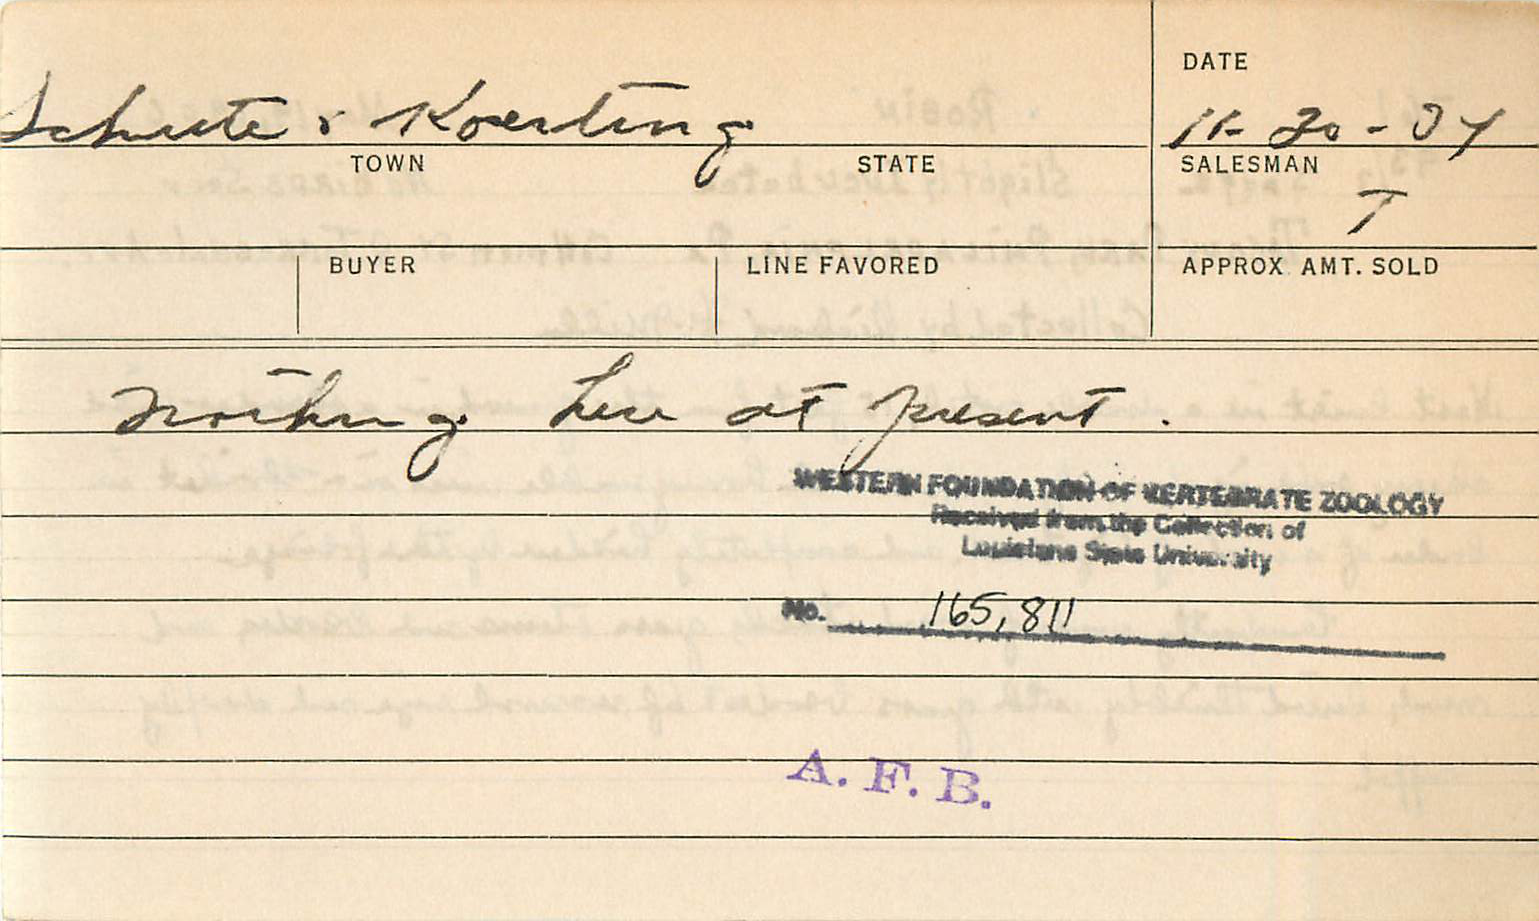 DATE
Schutte & Koerting
11-20-34
TOWN STATE SALESMAN
T
BUYER LINE FAVORED APPROX. AMT. SOLD
Nothing here at present.
WESTERN FOUNDATION OF VERTEBRATE ZOOLOGY
Received from the Collection of
Louisiana State University
No. 165,811
A. F. B.